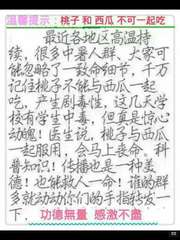 温馨提示：桃子和西瓜不可一起吃
最近各地区高温持
续，很多中暑人群、大家可
能忽略了一致命细节，千万
记住桃子不能与西瓜一起
吃，产生剧毒性，这几天学
校有学生中毒，但真是惊心
动魄！医生说，桃子与西瓜
一起服用，会马上丧命，科
普知识！传播也是一种美
德！也能救人一命！谁的群
多就动动你们的手指转发一
下，
功德無量 感激不盡